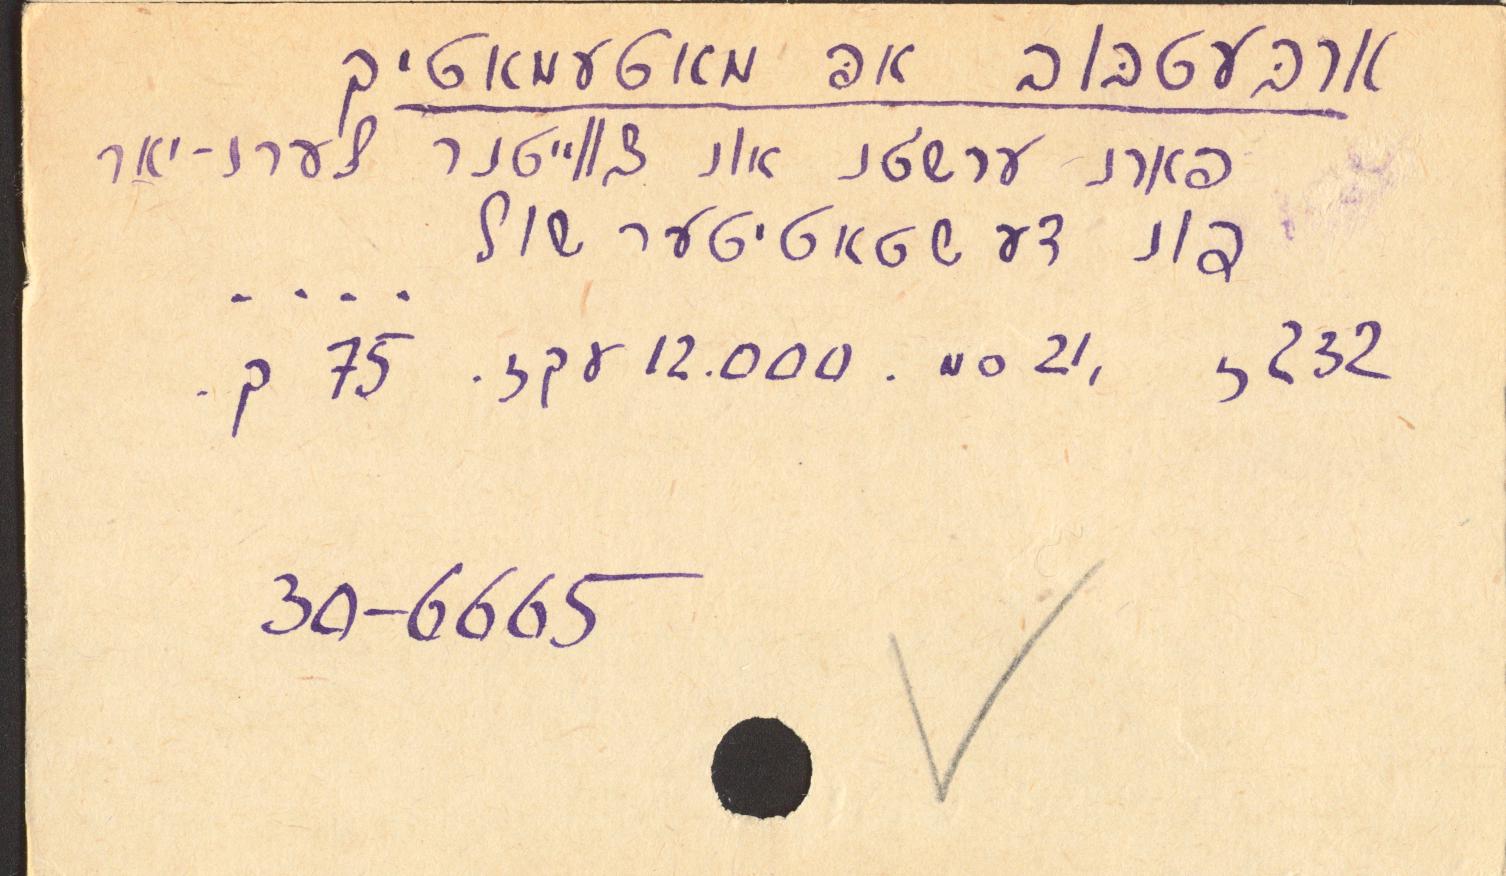 ארבעטבוב אפ מאטעמאטיק
פארנ ערשטנ אונ צווייטנר לערנ-יאר
פונ דע שטאטיטער שול
. . . .
232 ז, 21 סמ. 12.000 עקז. 75 ק.
30-6665